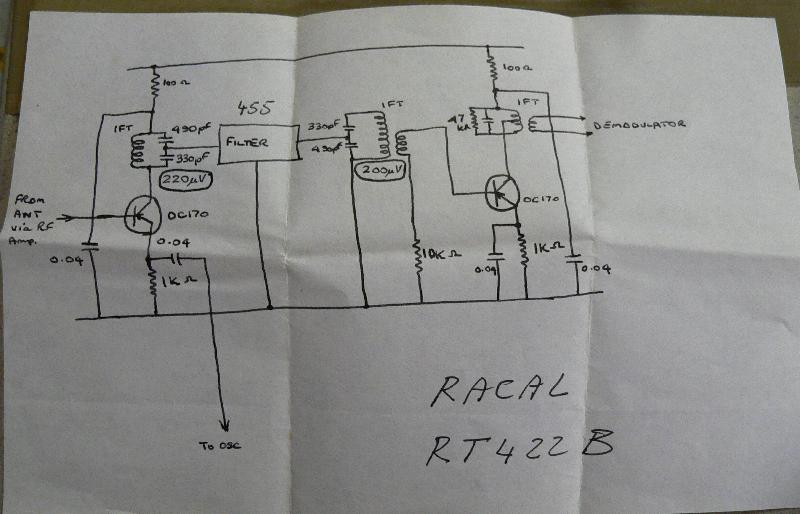 100Ω
455
1FT
490pf
330pf
FILTER
220μV
FROM
ANT
via RF
Amp.
OC170
0.04
0.04
1K Ω
To OSC
330pf
490pf
1FT
200μV
10K Ω
100Ω
1FT
47
kΩ
DEMODULATOR
OC170
0.04
1K Ω
0.04
RACAL
RT422B